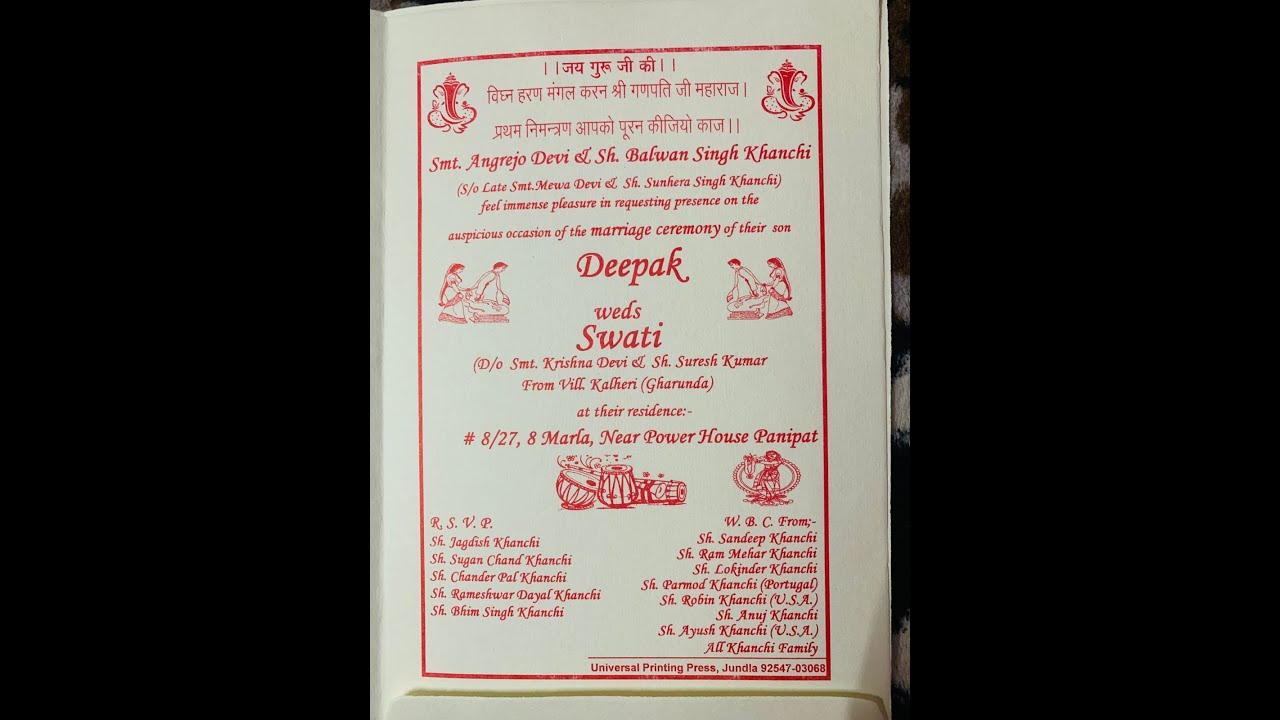 ||जय गुरू जी की||
विघ्न हरण मंगल करन श्री गणपति जी महाराज।
प्रथम निमन्त्रण आपको पूरन कीजियो काज।।
Smt. Angrejo Devi & Sh. Balwan Singh Khanchi
(S/o Late Smt.Mewa Devi & Sh. Sunhera Singh Khanchi)
feel immense pleasure in requesting presence on the
auspicious occasion of the marriage ceremony of their son
Deepak
weds
Swati
(D/o Smt. Krishna Devi & Sh. Suresh Kumar
From Vill. Kalheri (Gharunda)
at their residence:-
# 8/27, 8 Marla, Near Power House Panipat
R. S. V. P.
Sh. Jagdish Khanchi
Sh. Sugan Chand Khanchi
Sh. Chander Pal Khanchi
Sh. Rameshwar Dayal Khanchi
Sh. Bhim Singh Khanchi
W. B. C. From;-
Sh. Sandeep Khanchi
Sh. Ram Mehar Khanchi
Sh. Lokinder Khanchi
Sh. Parmod Khanchi (Portugal)
Sh. Robin Khanchi (U.S.A.)
Sh. Anuj Khanchi
Sh. Ayush Khanchi (U.S.A.)
All Khanchi Family
Universal Printing Press, Jundla 92547-03068